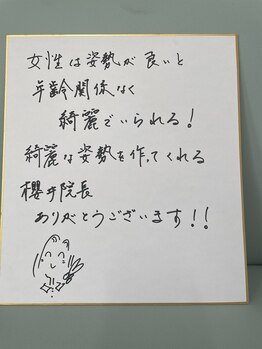 女性は姿勢が良いと
年齢関係なく
綺麗でいられる！
綺麗な姿勢を作ってくれる
櫻井院長
ありがとうございます！！